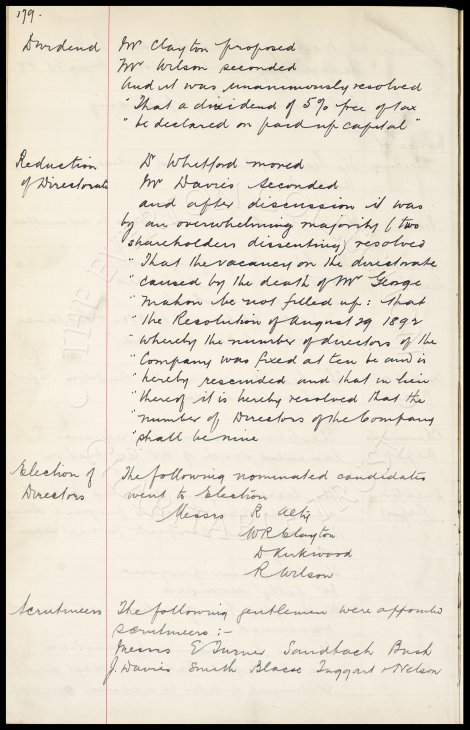 179.
Dividend Mr Clayton proposed
Mr Wilson seconded
And it was unanimously resolved
"That a dividend of 5% free of tax
"be declared on paid up capital"
Reduction Dr Whitford moved
of Directorate Mr Davies seconded
and after discussion it was
by an overwhelming majority (two
shareholders dissenting) resolved
"That the vacancy on the directorate
"caused by the death of Mr George
"Mahon be not filled up: that
"the Resolution of August 29 1892
"whereby the number of directors of the
"Company was fixed at ten be and is
"hereby rescinded and that in lieu
"thereof it is hereby resolved that the
"number of Directors of the Company
"shall be nine
Election of The following nominated candidates
Directors went to Election
Messrs R
W R Clayton
D Kirkwood
R Wilson
Scrutineers The following gentlemen were appointed
scrutineers:-
Messrs E Turner Sandbach Bush
J. Davies Smith Blease Taggart & Nelson